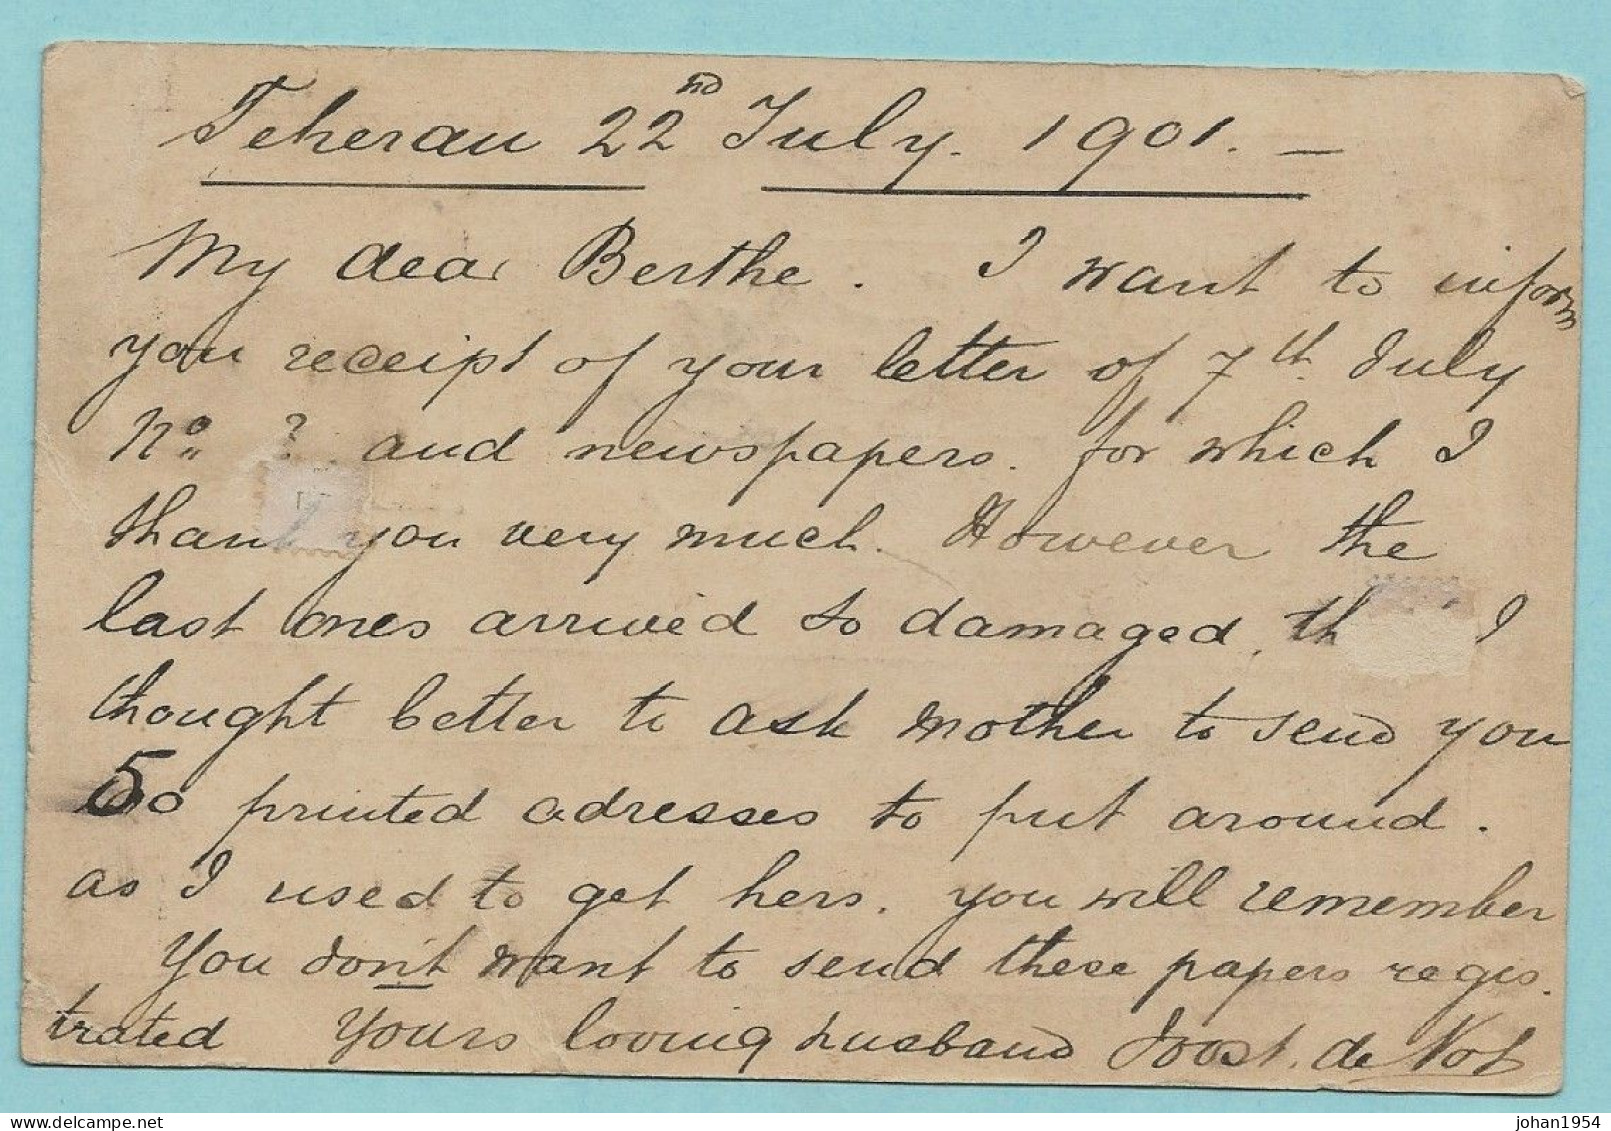 Teheran 22nd July. 1901. —
My dear Berthe. I want to inform
you receipt of your letter of 7th July
No. ? and newspapers. for which I
thank you very much. However the
last ones arrived so damaged, I
thought better to ask mother to send you
50 printed adresses to put around.
as I used to get hers. you will remember
You don't want to send these papers regis.
trated Yours loving husband Joost. de Not
johan1954